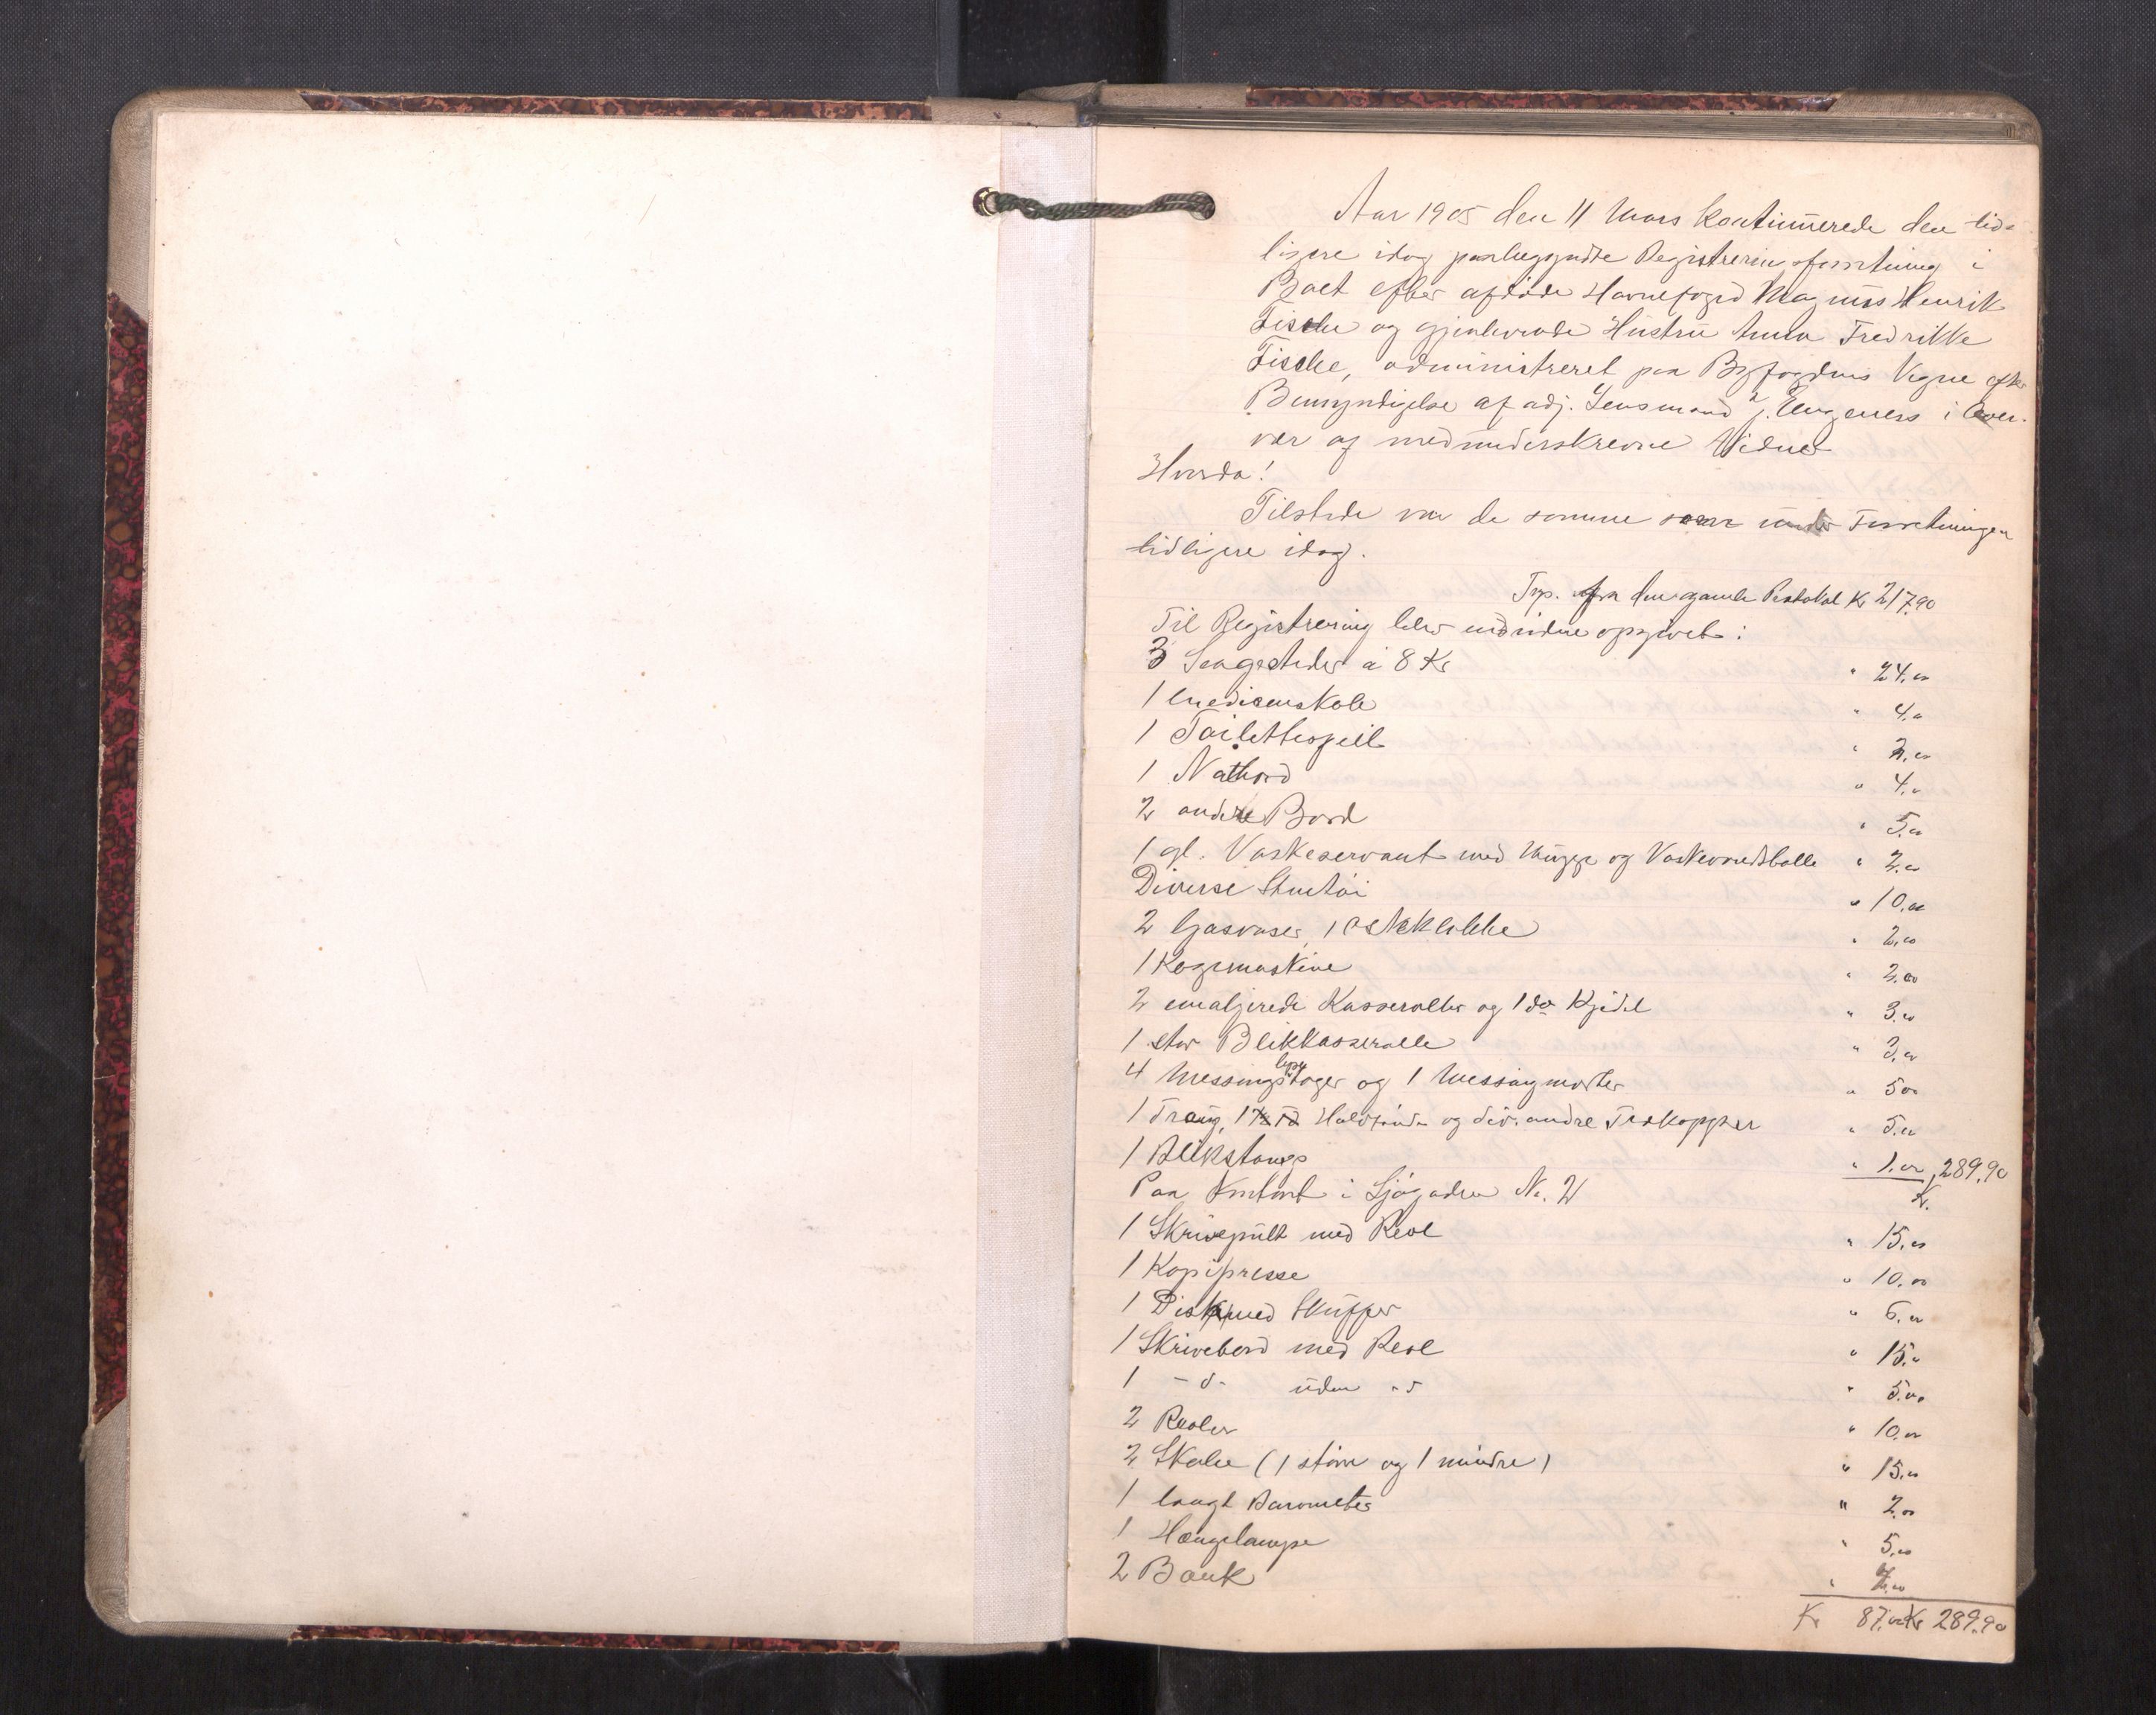 Aar 1905 den 11 Mars kontinuerede den tid-
ligere idag paabegyndte Registreringsforretning i
Boet efter afdøde Havnefoged Magnus Henrik
Fische og gjenlevende Hustru Anna Fredrikke
Fische, administreret paa Byfogdens Vegne efter
Bemyndigelse af adj. Lensmand J. Engeness i Over-
vær af medunderskrevne Vidner
Hvorda!
Tilstede var de samme som under Forretningen
tidligere idag.
Trp. fra den gamle Protokol Kr 217,90
Til Registrering blev endvidere opgivet:
3 Sengesteder à 8 Kr " 24.00
1 Medicinskab " 4.00
1 Toiletspeil " 2.00
1 Natbord " 4.00
2 andre Bord " 5.00
1 gl. Vaskeservant med Mugge og Vaskevandsbolle " 2.00
Diverse Stentøi " 10.00
2 Glasvaser, 1 Osteklokke " 2.00
1 Kogemaskine " 2.00
2 emaljerede Kasseroller og 1 do Kjedel " 3.00
1 stor Blikkasserolle " 3.00
4 Messinglysestager og 1 Messingmorter " 5.00
1 Traug, 1 Halvtønde og div. andre Trækopper " 5.00
1 Blikstamp " 1.00 289.90
Paa Kontoret i Sjøgaden No. 21 Kr.
1 Skrivepult med Reol " 15.00
1 Kopipresse " 10.00
1 Disk med Skuffer " 6.00
1 Skrivebord med Reol " 15.00
1 - d- uden - d " 5.00
2 Reoler " 10.00
2 Skabe (1 større og 1 mindre) " 15.00
1 langt Barometer " 2.00
1 Hængelampe " 5.00
2 Bænk " 4.00
Kr 87.00 Kr 289.90